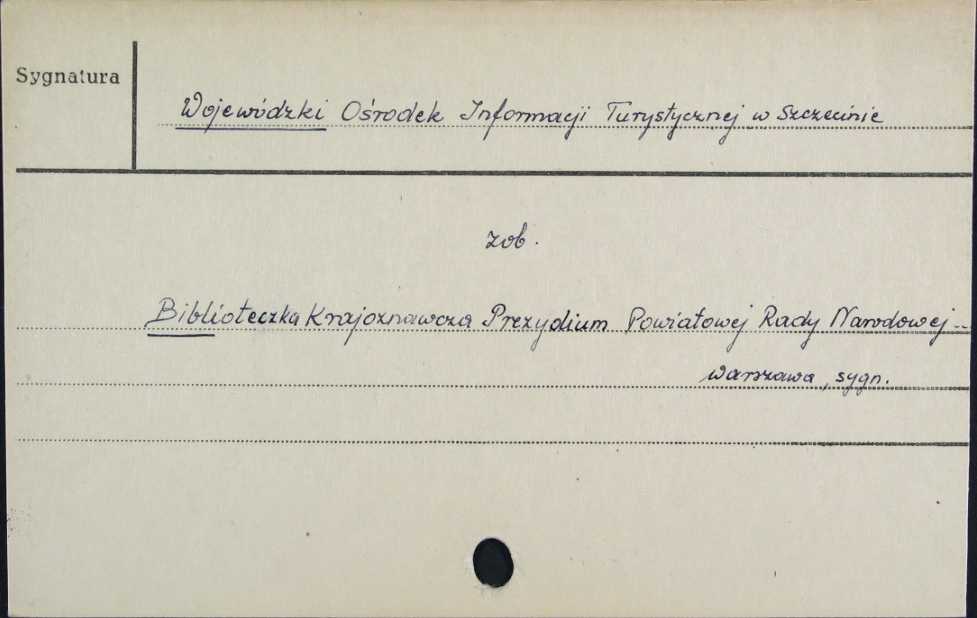 Sygnatura
Wojewódzki Ośrodek Informacji Turystycznej w Szczecinie
zob.
Biblioteczka Krajoznawcza Prezydium Powiatowej Rady Narodowej
Warszawa, sygn.